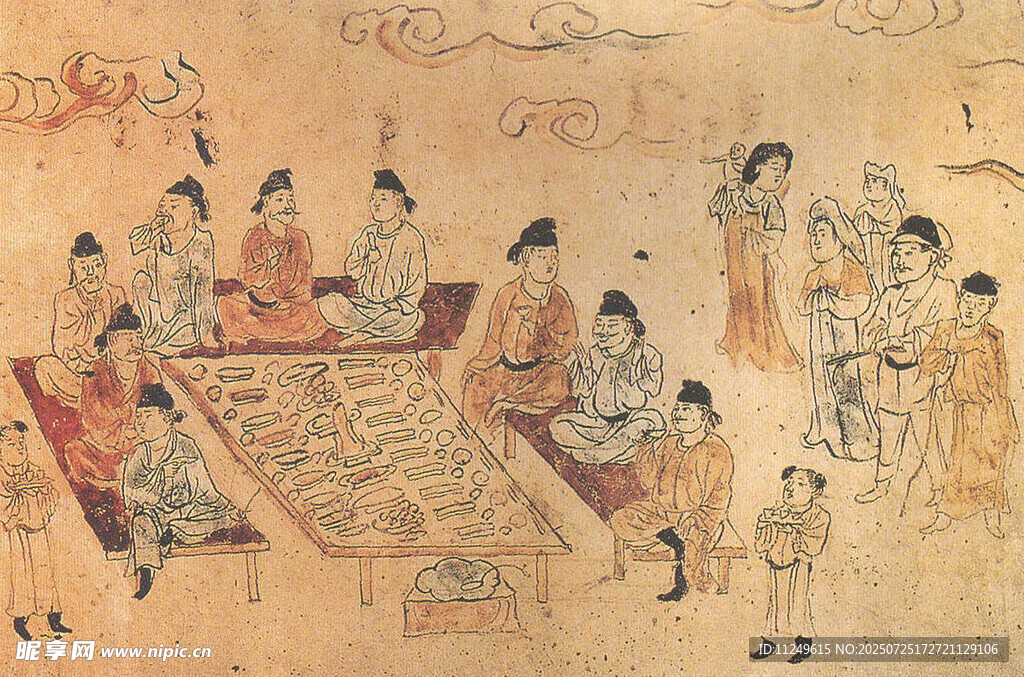 昵享网 www.nipic.cn
ID:11249615 NO:20250725172721129106